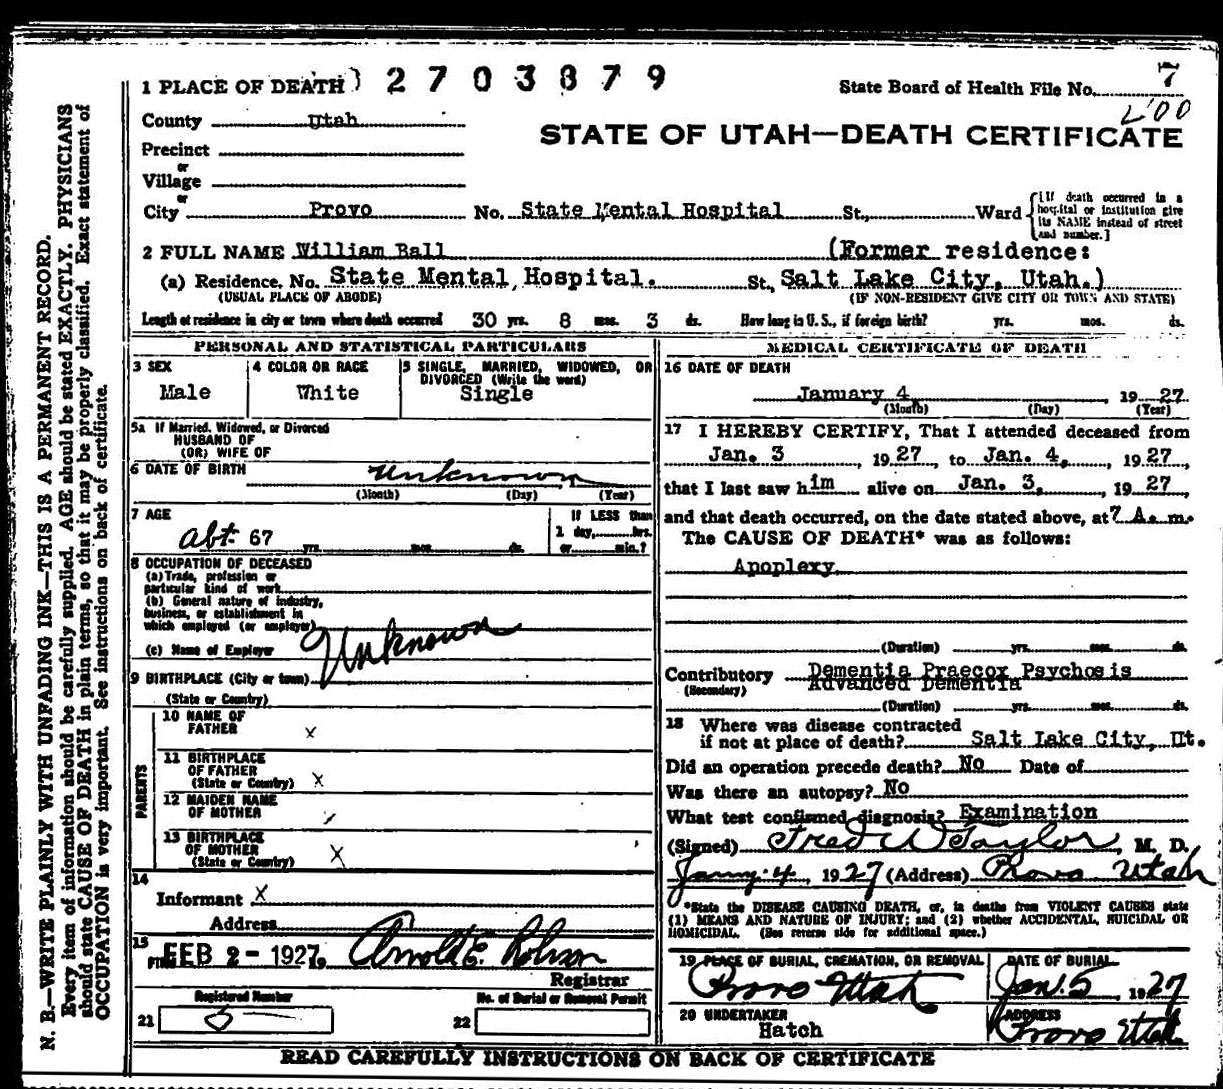 1 PLACE OF DEATH 2 7 0 3 8 7 9 State Board of Health File No. 7
County Utah
STATE OF UTAH—DEATH CERTIFICATE
Precinct
or
Village
or
City Provo No. State Mental Hospital St., Ward [If death occurred in a hospital or institution give its NAME instead of street and number.]
2 FULL NAME William Ball (Former residence:
(a) Residence. No. State Mental Hospital. St. Salt Lake City, Utah.)
(USUAL PLACE OF ABODE) (IF NON-RESIDENT GIVE CITY OR TOWN AND STATE)
Length of residence in city or town where death occurred 30 yrs. 8 mos. 3 ds. How long in U. S., if foreign birth? yrs. mos. ds.
PERSONAL AND STATISTICAL PARTICULARS
3 SEX
Male
4 COLOR OR RACE
White
5 SINGLE, MARRIED, WIDOWED, OR
DIVORCED (Write the word)
Single
5a If Married, Widowed, or Divorced
HUSBAND OF
(OR) WIFE OF
6 DATE OF BIRTH Unknown
(Month) (Day) (Year)
7 AGE
abt. 67 yrs. mos. ds.
If LESS than
1 day, hrs.
or min.?
8 OCCUPATION OF DECEASED
(a) Trade, profession or
particular kind of work
(b) General nature of industry,
business, or establishment in
which employed (or employer)
(c) Name of Employer Unknown
9 BIRTHPLACE (City or town)
(State or Country)
PARENTS
10 NAME OF
FATHER x
11 BIRTHPLACE
OF FATHER
(State or Country) x
12 MAIDEN NAME
OF MOTHER
13 BIRTHPLACE
OF MOTHER
(State or Country) x
14
Informant x
Address
15
FILED FEB 2 - 1927, Arnold E. Robison
Registrar
Registered Number No. of Burial or Removal Permit
21 5 22
MEDICAL CERTIFICATE OF DEATH
16 DATE OF DEATH
January 4, 1927
(Month) (Day) (Year)
17 I HEREBY CERTIFY, That I attended deceased from
Jan. 3, 1927, to Jan. 4, 1927,
that I last saw him alive on Jan. 3, 1927,
and that death occurred, on the date stated above, at 7 A. m.
The CAUSE OF DEATH* was as follows:
Apoplexy
(Duration) yrs. mos. ds.
Contributory Dementia Praecox Psychosis
(Secondary) Advanced Dementia
(Duration) yrs. mos. ds.
18 Where was disease contracted
if not at place of death? Salt Lake City, Ut.
Did an operation precede death? No Date of
Was there an autopsy? No
What test confirmed diagnosis? Examination
(Signed) Fred W Taylor, M. D.
Jany. 4, 1927 (Address) Provo Utah
*State the DISEASE CAUSING DEATH, or, in deaths from VIOLENT CAUSES state
(1) MEANS AND NATURE OF INJURY; and (2) whether ACCIDENTAL, SUICIDAL OR
HOMICIDAL. (See reverse side for additional space.)
19 PLACE OF BURIAL, CREMATION, OR REMOVAL
Provo Utah
DATE OF BURIAL
Jan. 5, 1927
20 UNDERTAKER
Hatch
ADDRESS
Provo Utah
READ CAREFULLY INSTRUCTIONS ON BACK OF CERTIFICATE
N. B.—WRITE PLAINLY WITH UNFADING INK—THIS IS A PERMANENT RECORD.
Every item of information should be carefully supplied. AGE should be stated EXACTLY. PHYSICIANS
should state CAUSE OF DEATH in plain terms, so that it may be properly classified. Exact statement of
OCCUPATION is very important. See instructions on back of certificate.